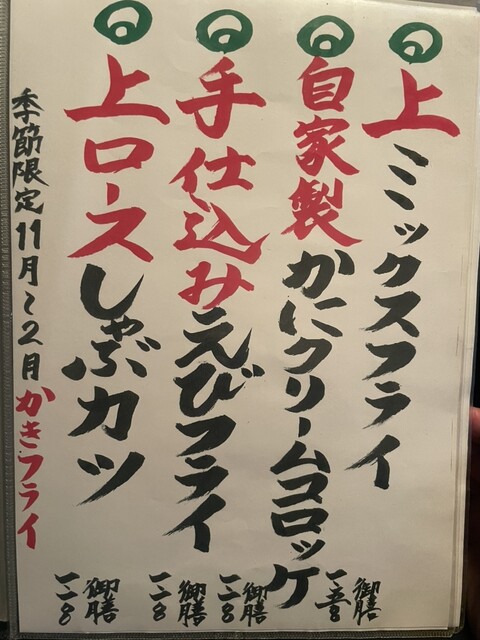 上ミックスフライ
御膳
一五〇〇
自家製かにクリームコロッケ
御膳
一二〇〇
手仕込みえびフライ
御膳
一一〇〇
上ロースしゃぶカツ
御膳
一一〇〇
季節限定11月~2月かきフライ